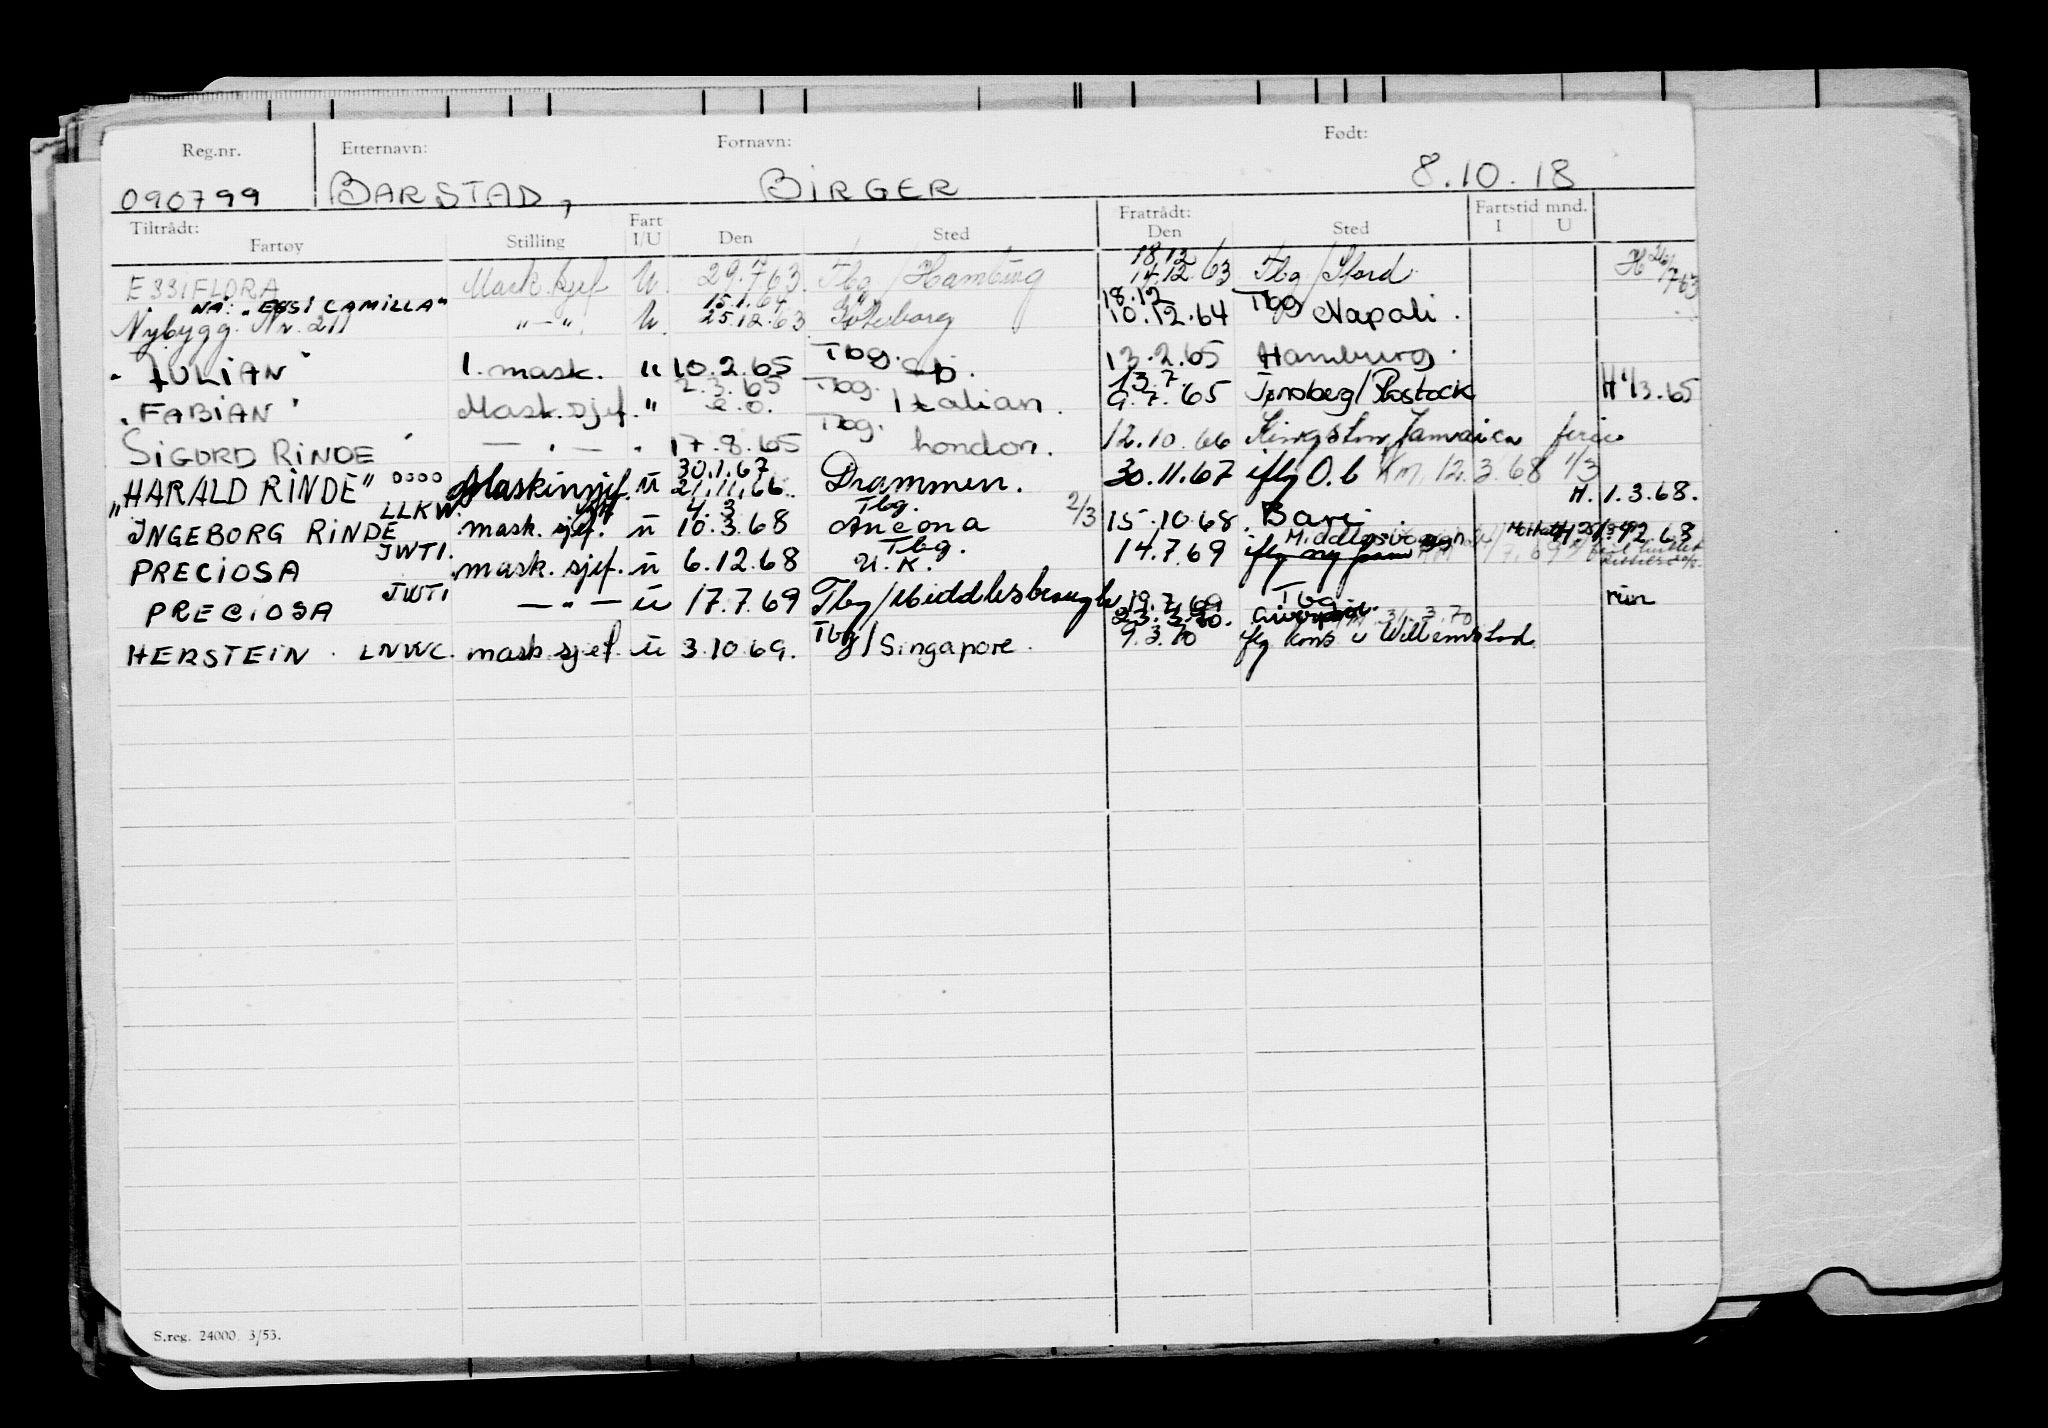 Reg.nr. Etternavn: Fornavn: Født:
090799 BARSTAD, BIRGER 8.10.18
Tiltrådt: Fart Fratrådt: Fartstid mnd.
Fartøy Stilling I/U Den Sted Den Sted I U
18.12
ESSIFLORA Mask.sjef U. 29.7.63. Tbg/Hamburg 14.12.63 Tbg/Stord H 26/7 63
NA: "ESSI CAMILLA" 15.1.64 18.12
Nybygg. Nr. 211 "—" U. 25.12.63 Göteborg 10.12.64 Tbg Napoli.
"JULIAN" 1. mask. " 10.2.65 Tbg. 13.2.65 Hamburg.
2.3.65 13.7.
"FABIAN" Mask.sjef. " e.o. Tbg. Italian. 9.7.65 Tønsberg/Rostock H 1/3.65
SIGURD RINDE — " — " 17.8.65 Tbg. London. 12.10.66 Kingston, Jamaica ferie
30.1.67
"HARALD RINDE" Maskinsjef. ü 21.11.66. Drammen. 30.11.67 iflg O.b KM. 12.3.68 1/3
LLKW. 4.3 Tbg. 2/3 H. 1.3.68.
INGEBORG RINDE mask. sjef. ü 10.3.68 Ancona 15.10.68. Bari.
JWTI. Tbg.
PRECIOSA mask. sjef. ü 6.12.68 U.K. 14.7.69
JWTI
PRECIOSA — " — ü 17.7.69 Tbg/Middlesbrough 19.7.69 Tbg
23.3.70. 31.3.70
HERSTEIN. LNWC. mask.sjef. ü 3.10.69. Tbg/Singapore. 9.3.70 iflg kons i Willemstad
S.reg. 24000 3/53.